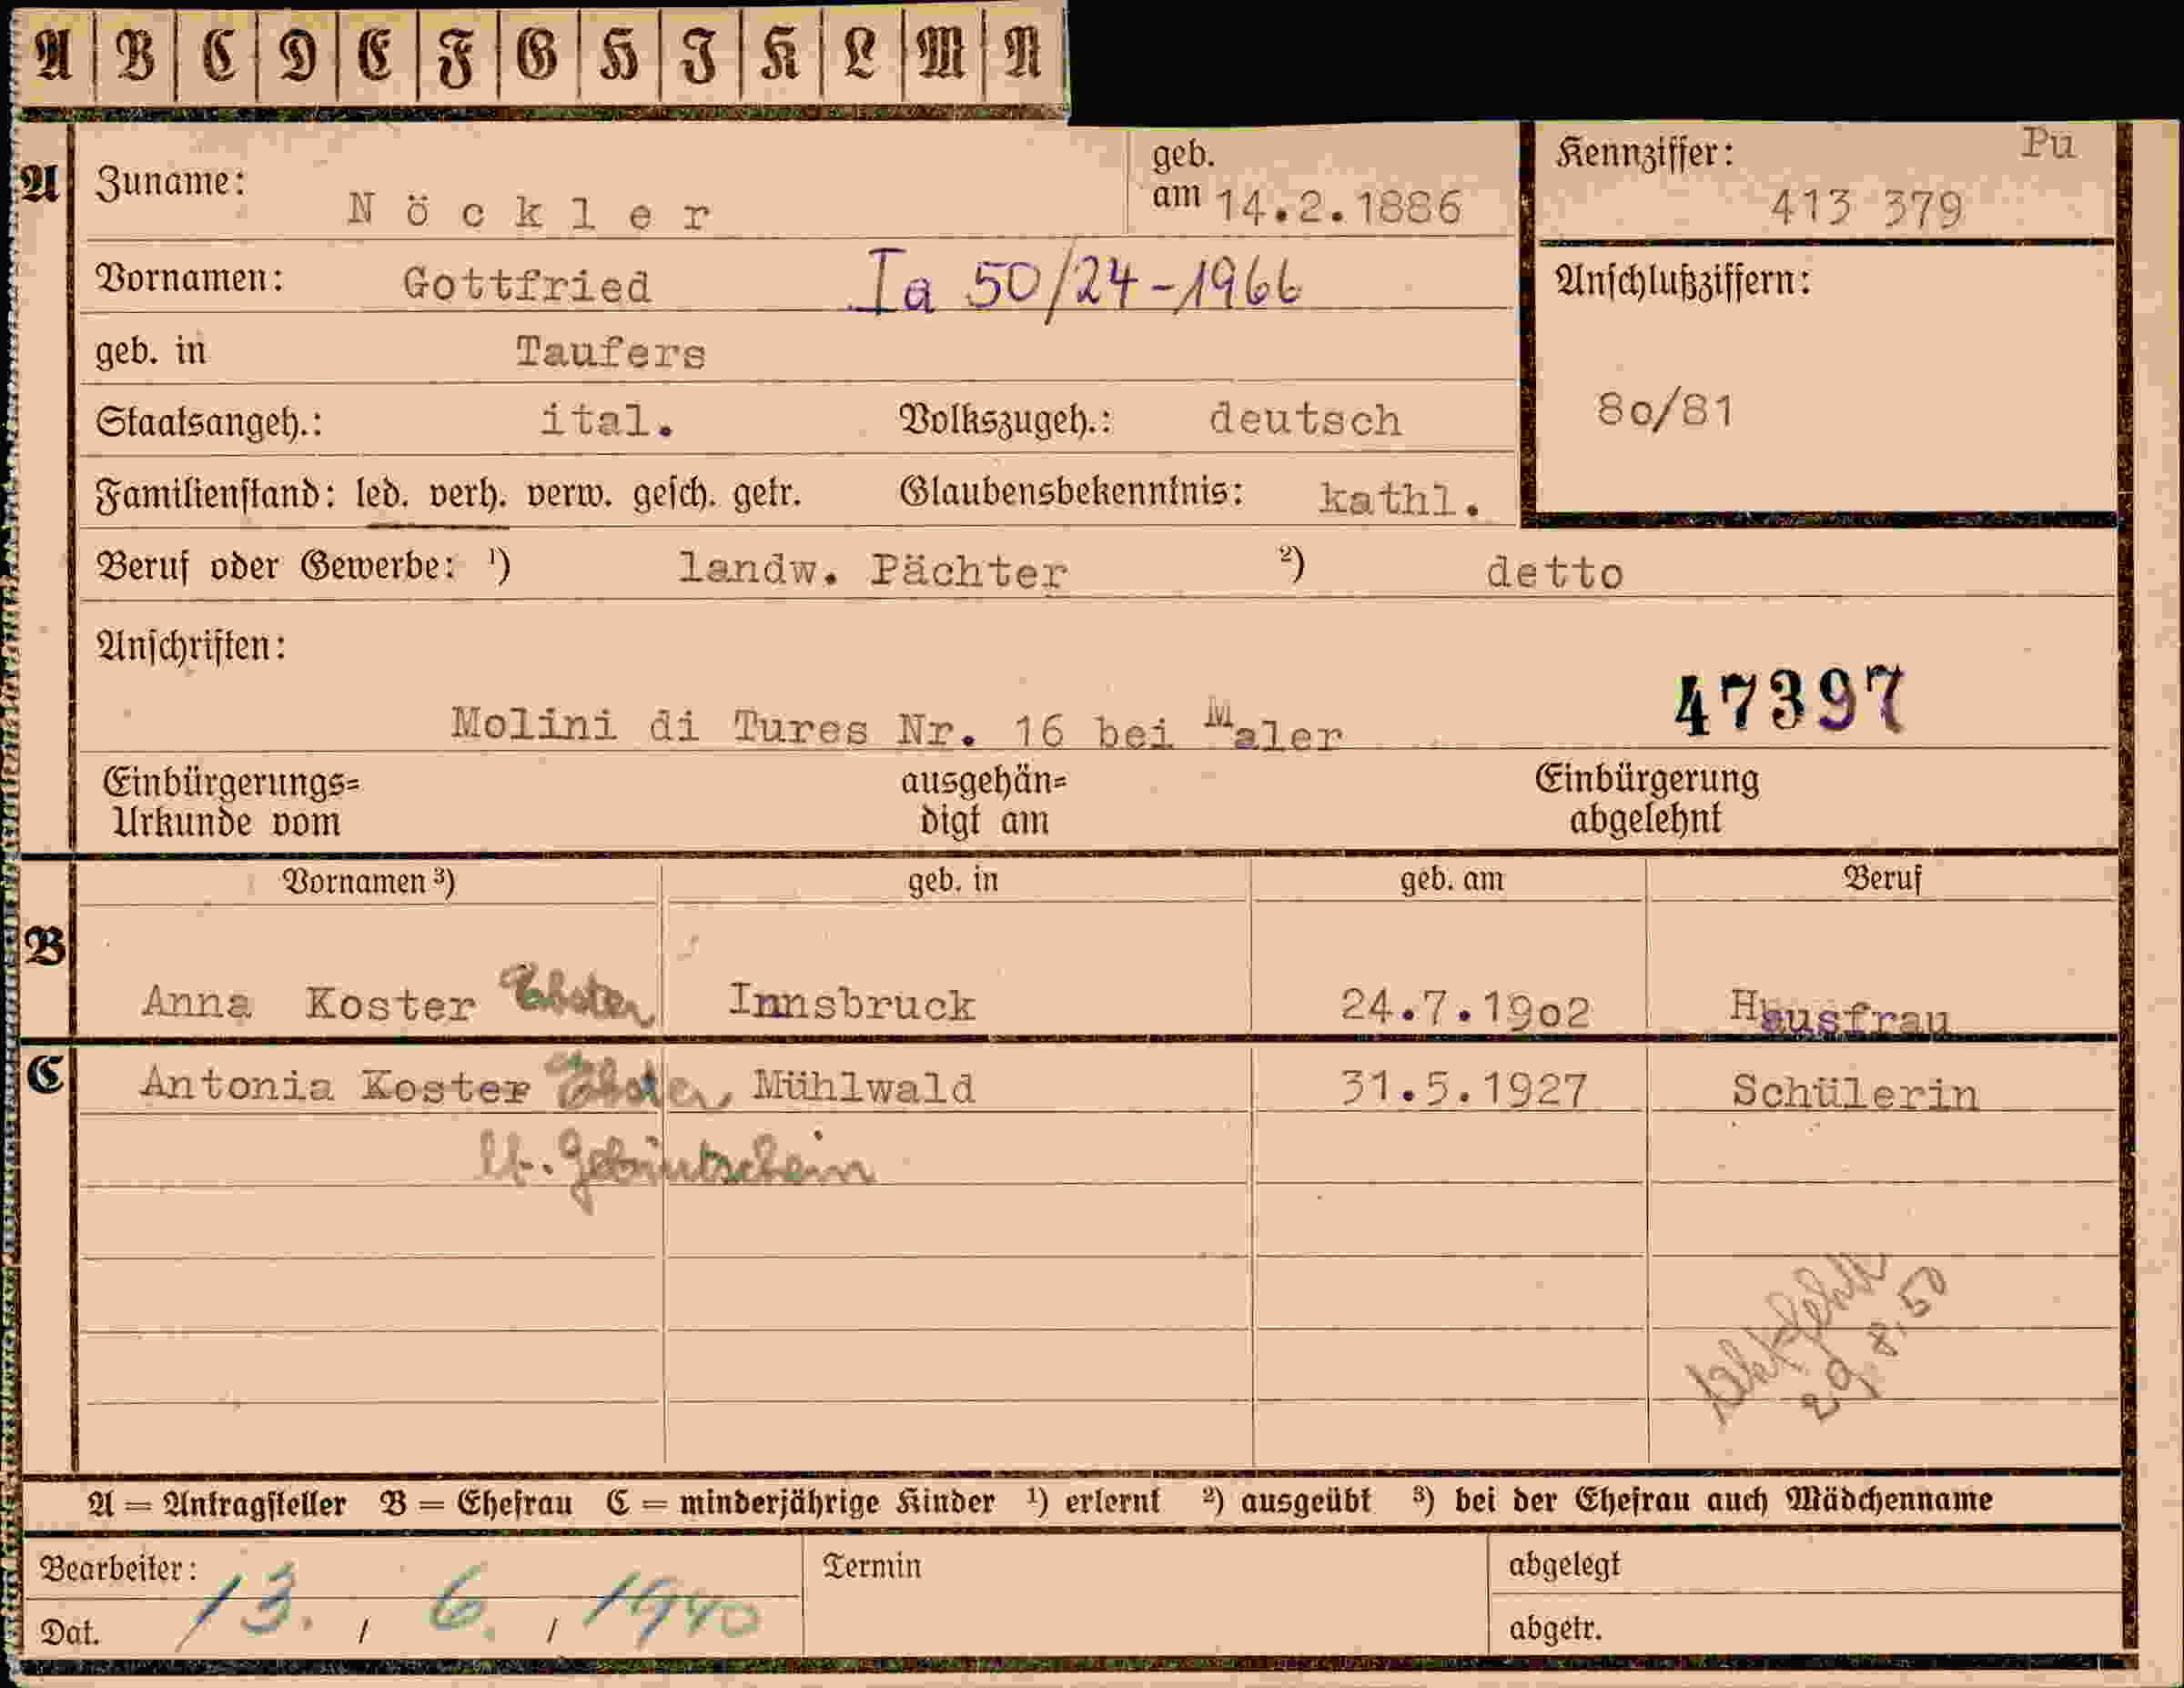 A B C D E F G H I K L M N
A
Zuname: Nöckler
geb. am 14.2.1886
Kennziffer: Pu
413 379
Vornamen: Gottfried Ia 50/24-1966
Anschlußziffern:
80/81
geb. in Taufers
Staatsangeh.: ital. Volkszugeh.: deutsch
Familienstand: led. verh. verw. gesch. getr. Glaubensbekenntnis: kathl.
Beruf oder Gewerbe: ¹) landw. Pächter ²) detto
Anschriften:
Molini di Tures Nr. 16 bei Maler
47397
Einbürgerungs= ausgehän= Einbürgerung
Urkunde vom digt am abgelehnt
Vornamen ³) geb. in geb. am Beruf
B
Anna Koster Innsbruck 24.7.1902 Hausfrau
C
Antonia Koster Mühlwald 31.5.1927 Schülerin
lt. Geburtschein
29.8.50
A = Antragsteller B = Ehefrau C = minderjährige Kinder ¹) erlernt ²) ausgeübt ³) bei der Ehefrau auch Mädchenname
Bearbeiter: Termin abgelegt
Dat. 13. / 6. / 1940 abgetr.